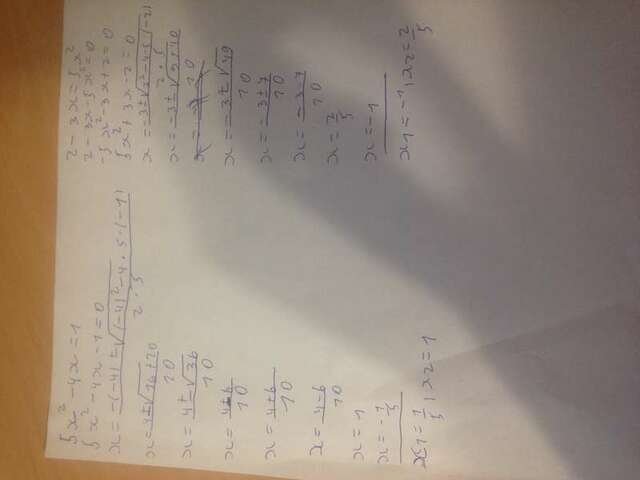 5x² - 4x = 1
5x² - 4x - 1 = 0
x = -(-4) ± √(-4)² - 4 · 5 · (-1) / 2 · 5
x = 4 ± √16 + 20 / 10
x = 4 ± √36 / 10
x = 4 ± 6 / 10
x = 4 + 6 / 10
x = 4 - 6 / 10
x = 1
x = - 1/5
x1 = 1/5 , x2 = 1
2 - 3x = 5x²
2 - 3x - 5x² = 0
-5x² - 3x + 2 = 0
5x² + 3x - 2 = 0
x = -3 ± √3² - 4 · 5 (-2) / 2 · 5
x = -3 ± √9 + 40 / 10
x = -3 ± √49 / 10
x = -3 ± 7 / 10
x = -3 - 7 / 10
x = 2/5
x = -1
x1 = -1 , x2 = 2/5